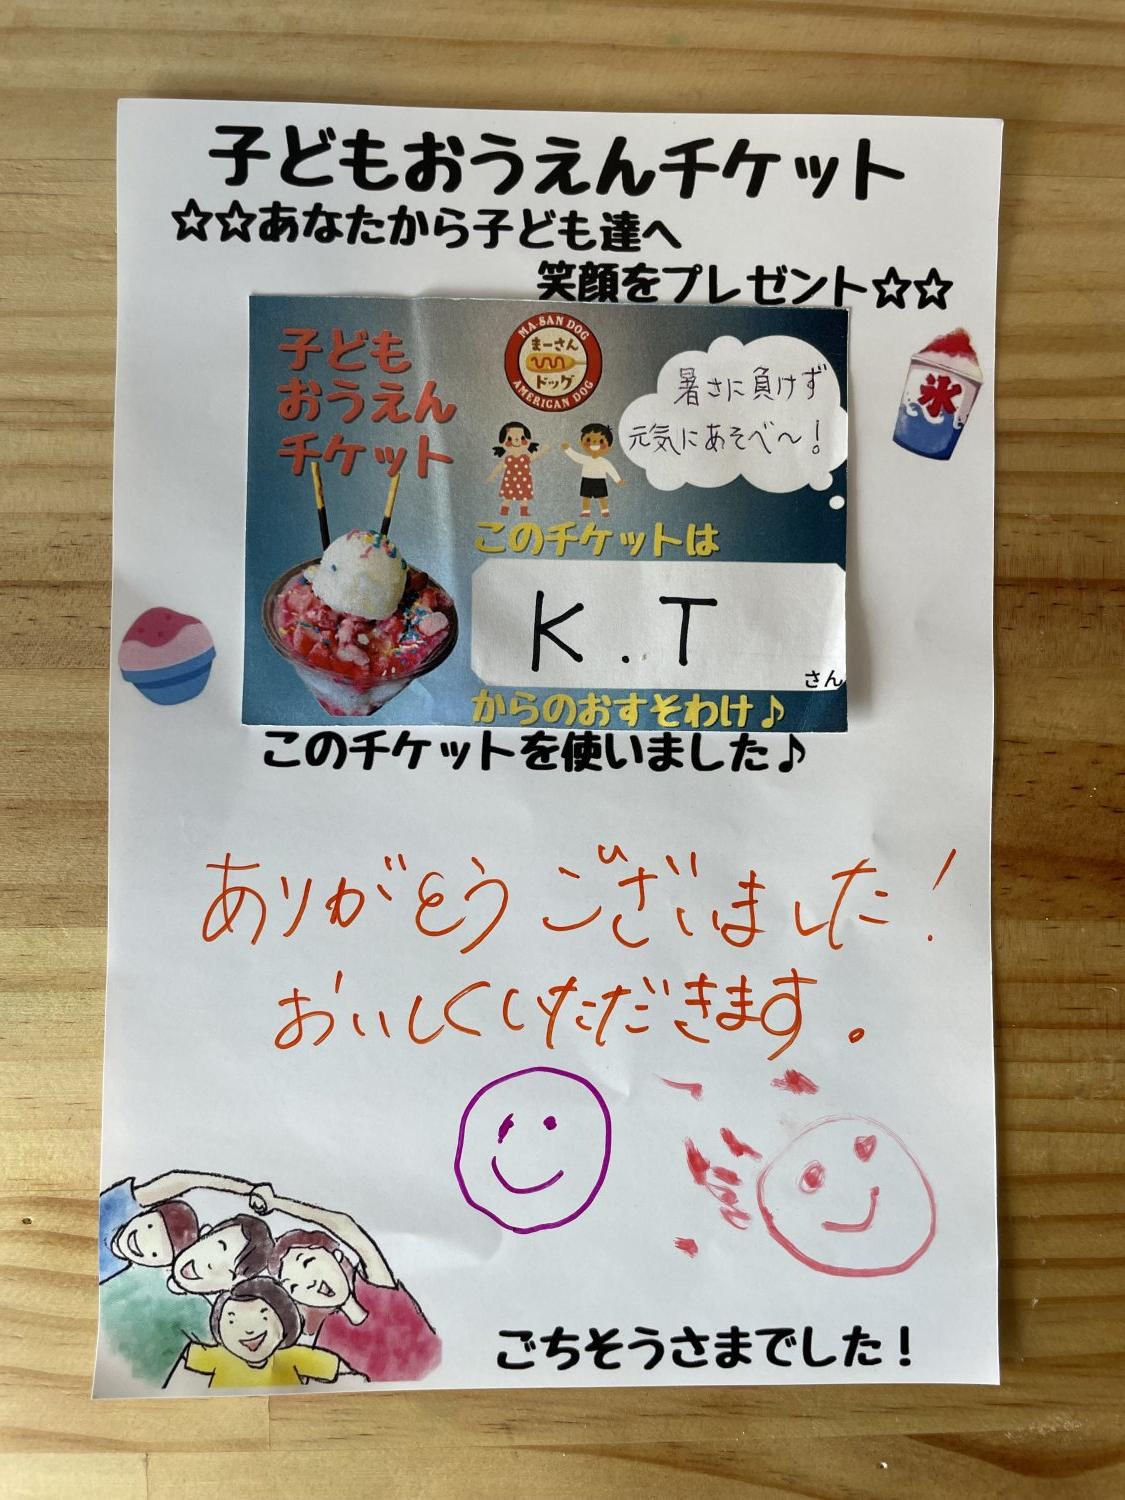 子どもおうえんチケット
☆☆あなたから子ども達へ
笑顔をプレゼント☆☆
子ども
おうえん
チケット
MA-SAN DOG
まーさん
ドッグ
AMERICAN DOG
暑さに負けず
元気にあそべ〜!
氷
このチケットは
K.T
さん
からのおすそわけ♪
このチケットを使いました♪
ありがとうございました!
おいしくいただきます。
ごちそうさまでした!